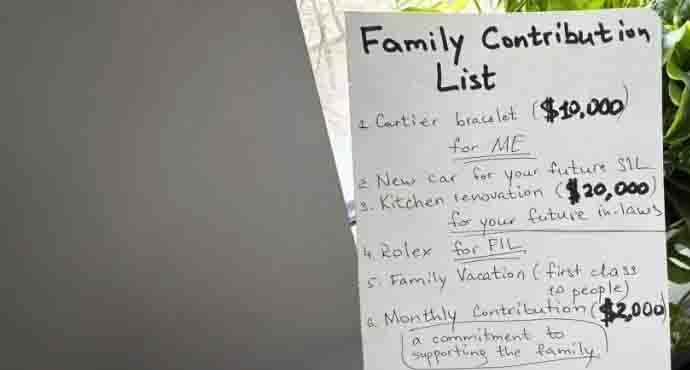 Family Contribution
List
1. Cartier bracelet ($10,000)
for ME
2. New car for your future SIL
3. Kitchen renovation ($20,000)
for your future in-laws
4. Rolex for FIL
5. Family Vacation (first class
10 people)
6. Monthly Contribution ($2,000)
a commitment to
supporting the family.